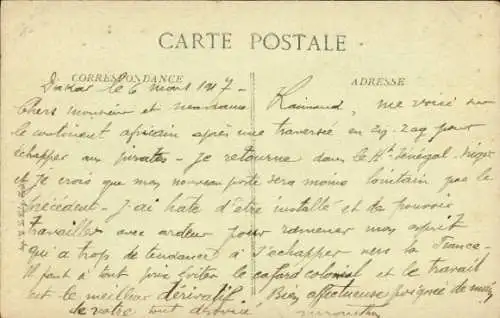 CARTE POSTALE
CORRESPONDANCE
ADRESSE
Dakar le 6 mars 1917 -
Chers monsieur et madame Raimond, me voici sur
le continent africain après une traversée en zig-zag pour
échapper aux pirates - je retourne dans le Ht Sénégal-Niger
et je crois que mon nouveau poste sera moins lointain que le
précédent - j'ai hâte d'être installé et de pouvoir
travailler avec ardeur pour ramener mon esprit
qui a trop de tendances à s'échapper vers la France -
Il faut à tout prix éviter le cafard colonial et le travail
est le meilleur dérivatif. Bien affectueuse poignée de main
de votre tout dévoué